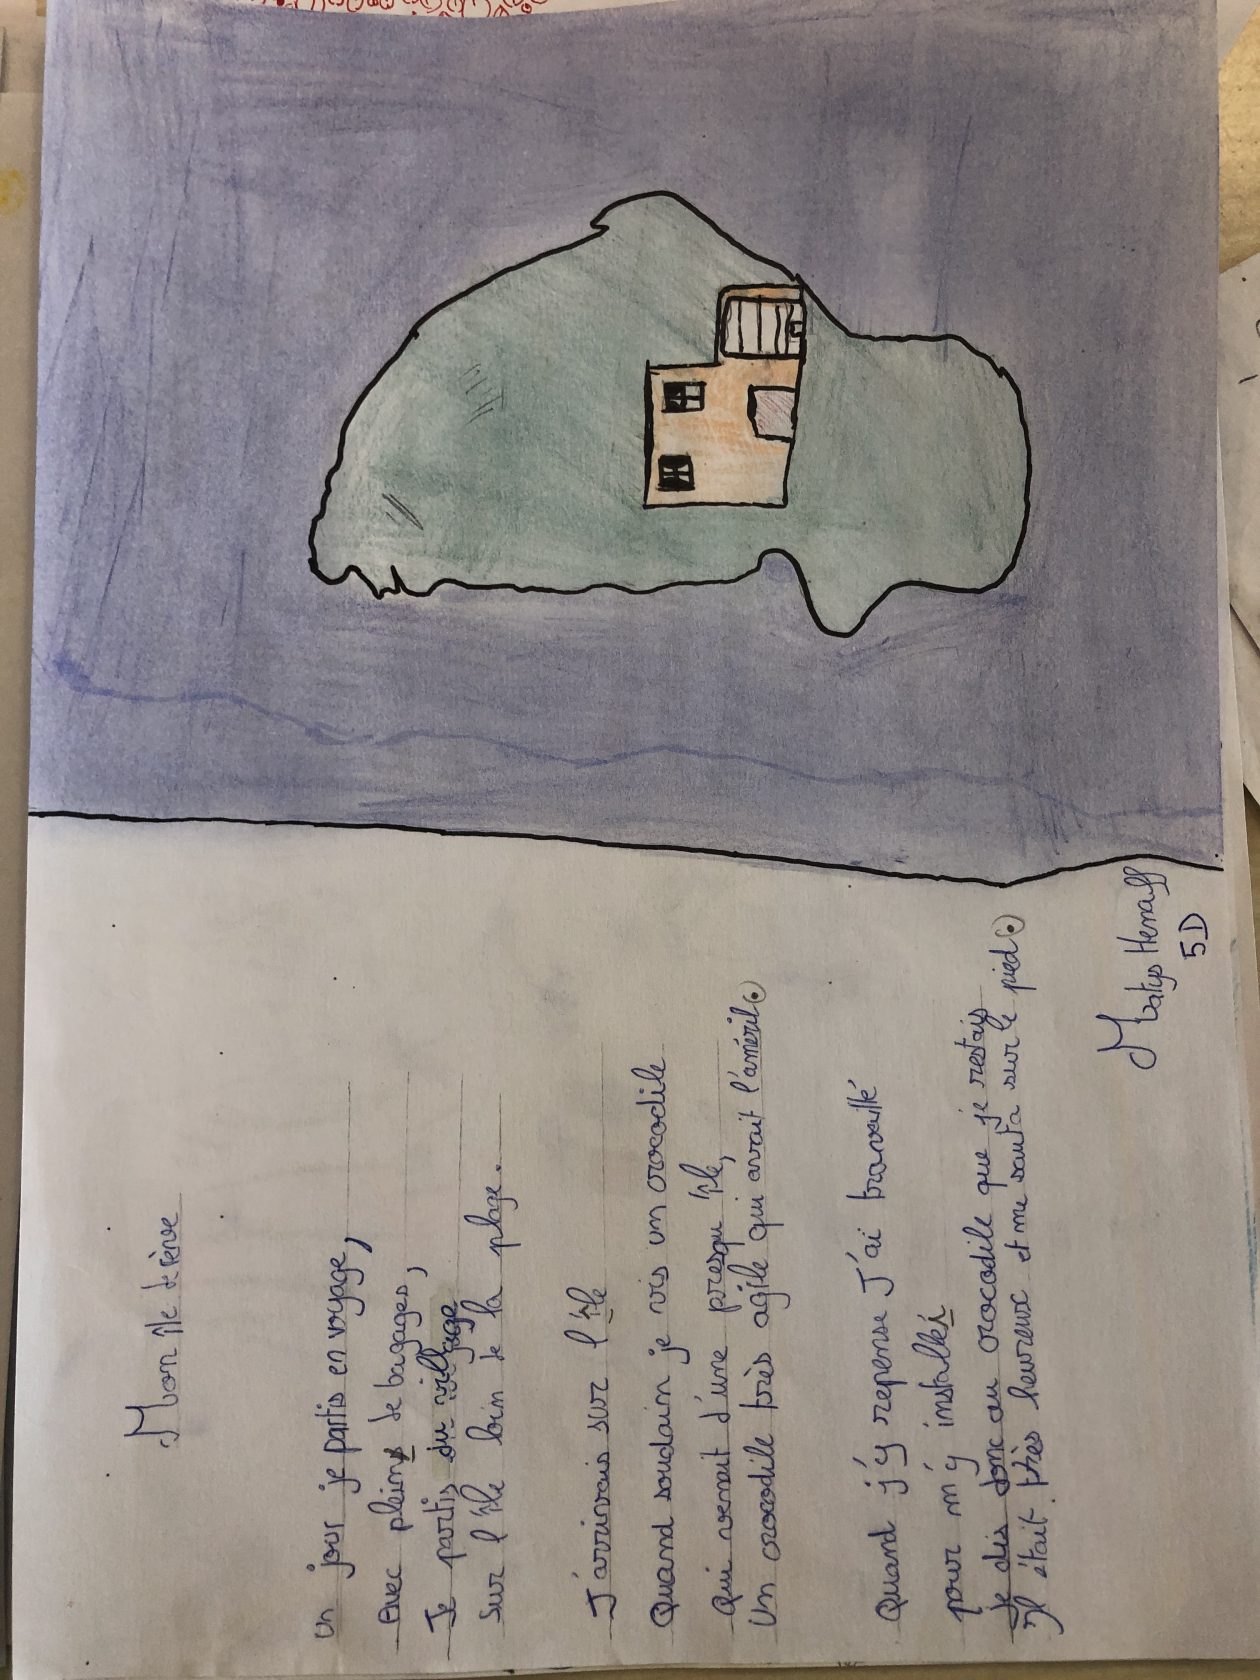 Mon île de rêve
Un jour je partis en voyage,
Avec pleins de bagages,
Je partis du village
Sur l'île loin de la plage.
J'arrivais sur l'île
Quand soudain je vis un crocodile
Qui venait d'une presqu'île,
Un crocodile très agile qui avait l'améril.
Quand j'y repense J'ai travaillé
pour m'y installé
Je dis donc au crocodile que je restais
Il était très heureux et me sauta sur le pied.
Matys Henaff
5D